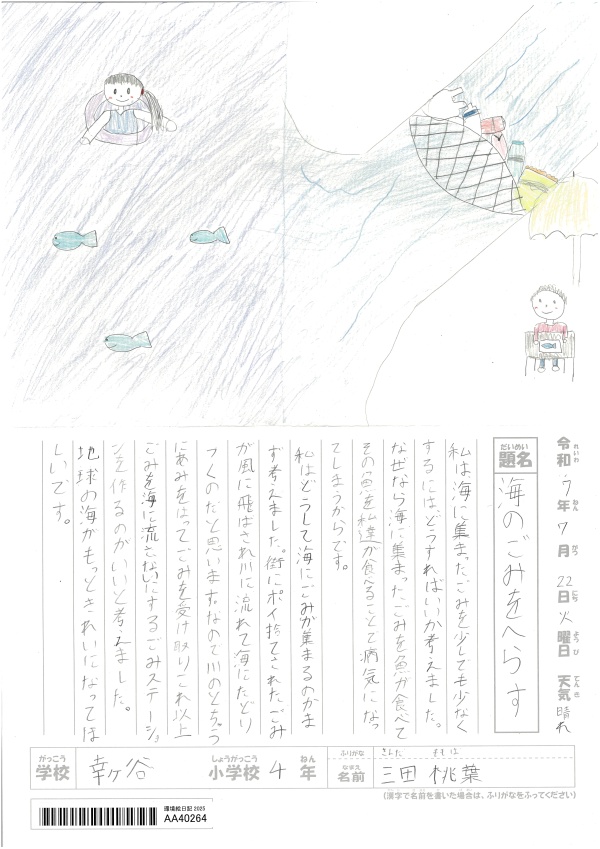 令和7年7月22日火曜日 天気 晴れ
れいわ ねん がつ にち ようび てんき
だいめい
題名
海のごみをへらす
私は海に集まったごみを少しでも少なく
するには、どうすればいいか考えました。
なぜなら海に集まったごみを魚が食べて
その魚を私達が食べることで病気になっ
てしまうからです。
私はどうして海にごみが集まるのかま
ず考えました。街にポイ捨てされたごみ
が風に飛ばされ川に流れて海にたどり
つくのだと思います。なので川のとちゅう
にあみをはってごみを受け取りこれ以上
ごみを海に流さないにするごみステーショ
ンを作るのがいいと考えました。
地球の海がもっときれいになってほ
しいです。
がっこう しょうがっこう ねん
学校 幸ヶ谷 小学校 4年
ふりがな さんた ももは
なまえ
名前 三田 桃葉
(漢字で名前を書いた場合は、ふりがなをふってください)
環境絵日記 2025
AA40264